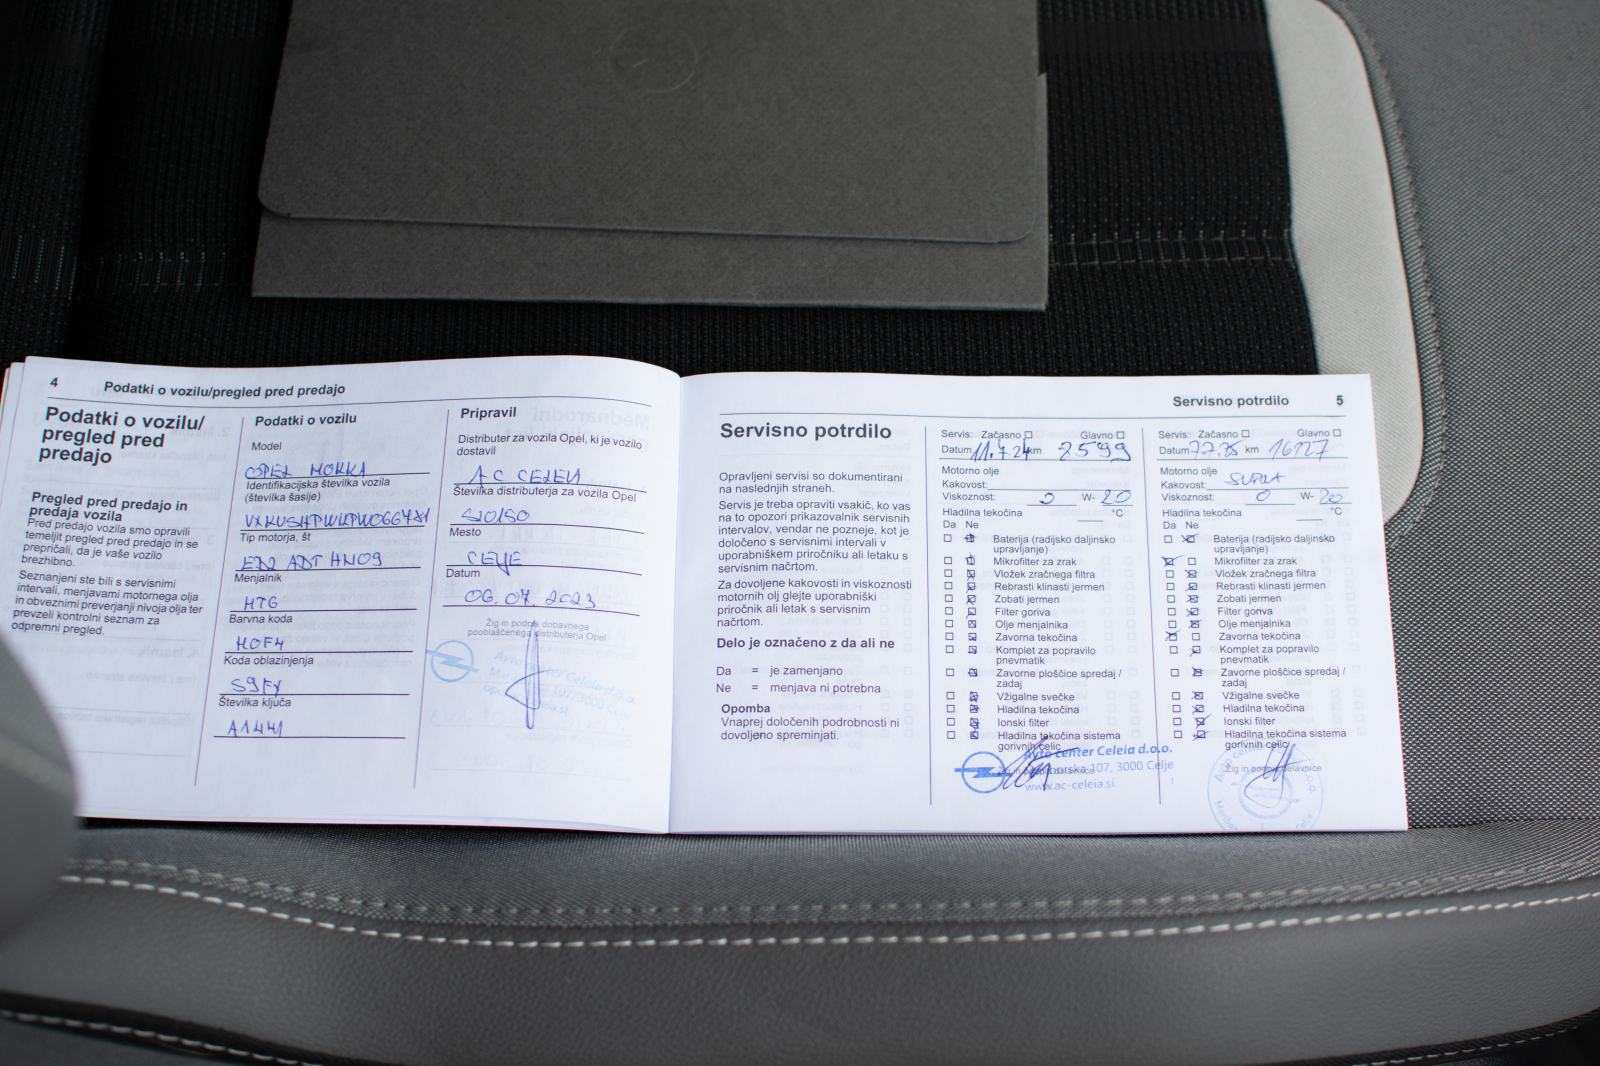 4 Podatki o vozilu/pregled pred predajo
Podatki o vozilu/
pregled pred
predajo
Pregled pred predajo in
predaja vozila
Pred predajo vozila smo opravili
temeljit pregled pred predajo in se
prepričali, da je vaše vozilo
brezhibno.
Seznanjeni ste bili s servisnimi
intervali, menjavami motornega olja
in obveznimi preverjanji nivoja olja ter
prevzeli kontrolni seznam za
odpremni pregled.
Podatki o vozilu
Model
OPEL MOKKA
Identifikacijska številka vozila
(številka šasije)
Tip motorja, št
Menjalnik
Barvna koda
Koda oblazinjenja
S9FY
Številka ključa
Pripravil
Distributer za vozila Opel, ki je vozilo
dostavil
AC CELEIA
Številka distributerja za vozila Opel
Mesto
CELJE
Datum
06.07.2023
Žig in podpis dobavnega
pooblaščenega distributerja Opel
Avto center Celeia d.o.o.
107, 3000 Celje
Servisno potrdilo 5
Servisno potrdilo
Opravljeni servisi so dokumentirani
na naslednjih straneh.
Servis je treba opraviti vsakič, ko vas
na to opozori prikazovalnik servisnih
intervalov, vendar ne pozneje, kot je
določeno s servisnimi intervali v
uporabniškem priročniku ali letaku s
servisnim načrtom.
Za dovoljene kakovosti in viskoznosti
motornih olj glejte uporabniški
priročnik ali letak s servisnim
načrtom.
Delo je označeno z da ali ne
Da = je zamenjano
Ne = menjava ni potrebna
Opomba
Vnaprej določenih podrobnosti ni
dovoljeno spreminjati.
Servis: Začasno Glavno
Datum 11.7.24 km 8599
Motorno olje
Kakovost:
Viskoznost: 0 W- 20
Hladilna tekočina °C
Da Ne
Baterija (radijsko daljinsko
upravljanje)
Mikrofilter za zrak
Vložek zračnega filtra
Rebrasti klinasti jermen
Zobati jermen
Filter goriva
Olje menjalnika
Zavorna tekočina
Komplet za popravilo
pnevmatik
Zavorne ploščice spredaj /
zadaj
Vžigalne svečke
Hladilna tekočina
Ionski filter
Hladilna tekočina sistema
gorivnih celic
Avto center Celeia d.o.o.
107, 3000 Celje
www.ac-celeia.si
Servis: Začasno Glavno
Datum km 16127
Motorno olje
Kakovost:
Viskoznost: 0 W- 20
Hladilna tekočina °C
Da Ne
Baterija (radijsko daljinsko
upravljanje)
Mikrofilter za zrak
Vložek zračnega filtra
Rebrasti klinasti jermen
Zobati jermen
Filter goriva
Olje menjalnika
Zavorna tekočina
Komplet za popravilo
pnevmatik
Zavorne ploščice spredaj /
zadaj
Vžigalne svečke
Hladilna tekočina
Ionski filter
Hladilna tekočina sistema
gorivnih celic
Žig in podpis delavnice